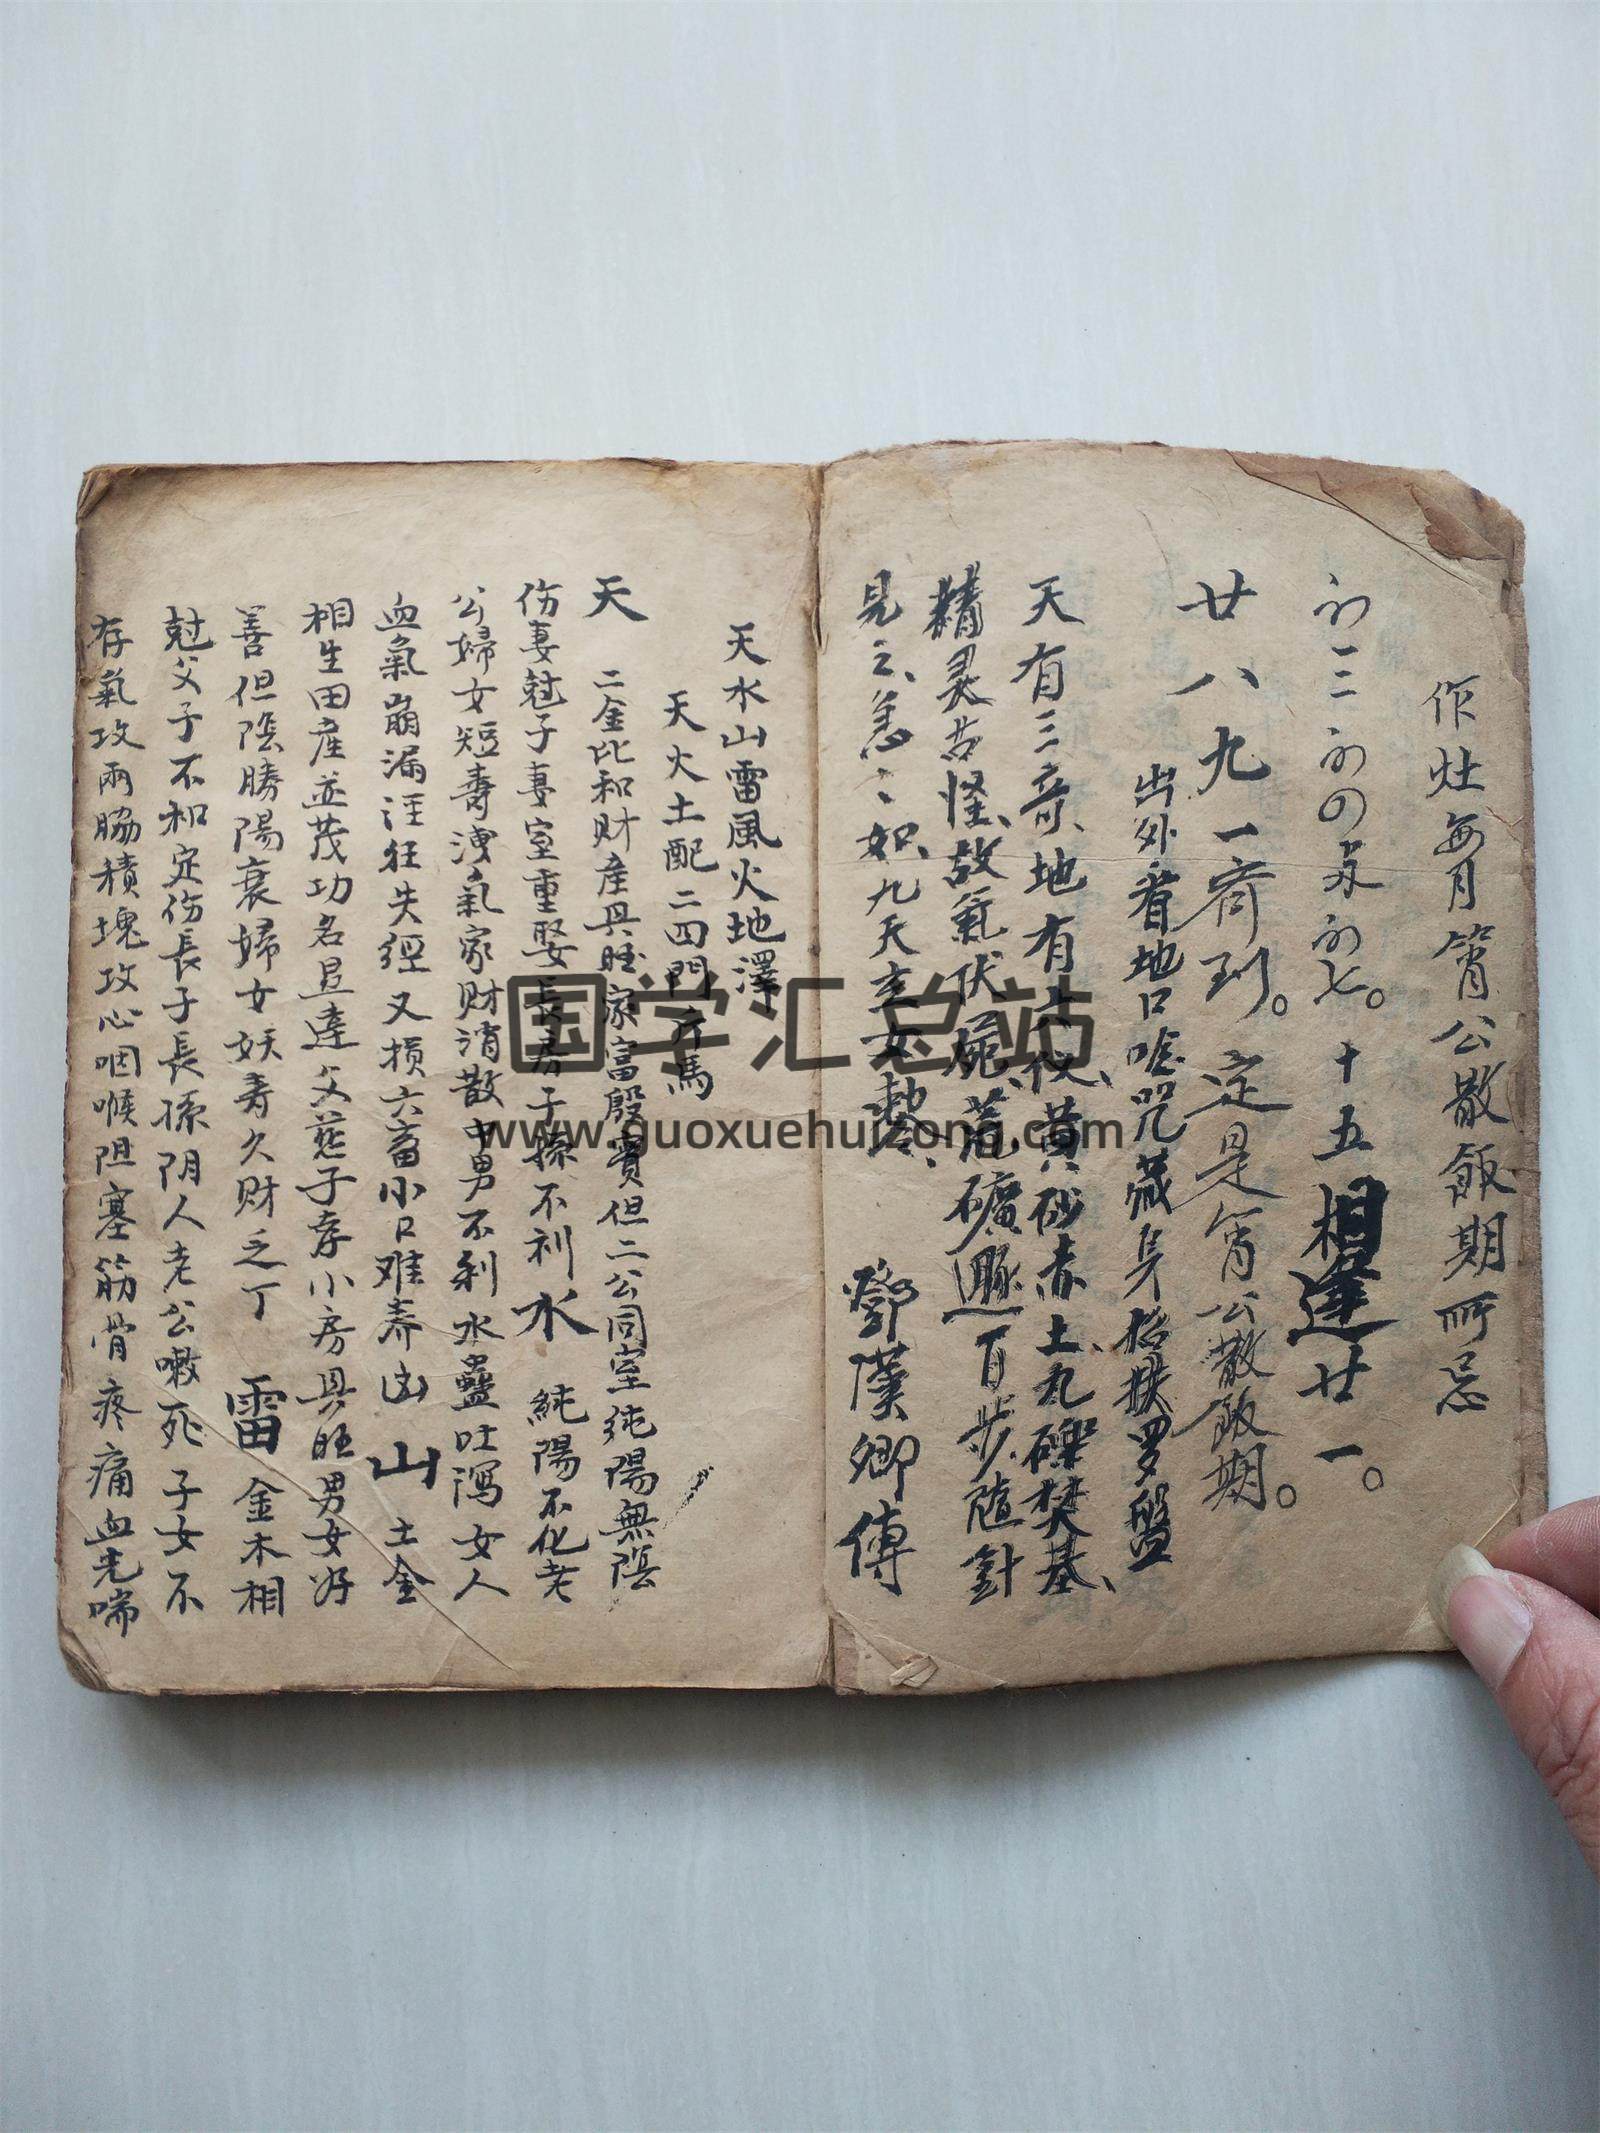 作灶每月宵公散飯期所忌
初三初四并初七。十五相逢廿一。
廿八九一齊到。定是宵公散飯期。
出外看地口唸咒藏身招挾罗盤
天有三奇、地有六仪、黄砂赤土、九礫焚基、
精灵古怪、故氣伏屍、荒礦 百步随針
見之、急〻如、九天玄女 、
鄧漢卿傳
天水山雷風火地澤
天火土配二四門 馬
天 二金比和财産具旺家富殷實但二公同室纯陽無陰
伤妻尅子妻室重娶長房子孫不利水 純陽不化老
公婦女短壽洩氣家财消散中男不利水蠱吐瀉女人
血氣崩漏 狂失經又損六畜小口难养凶山 土金
相生田産並茂功名显達父慈子孝小房具旺男女好
善但陰勝陽衰婦女妖寿久财乏丁 雷 金木相
尅父子不和定伤長子長孫阴人老公嗽死子女不
存氣攻两脇積塊攻心咽喉阻塞筋骨疼痛血光喘
国学汇总站
www.guoxuehuizong.com